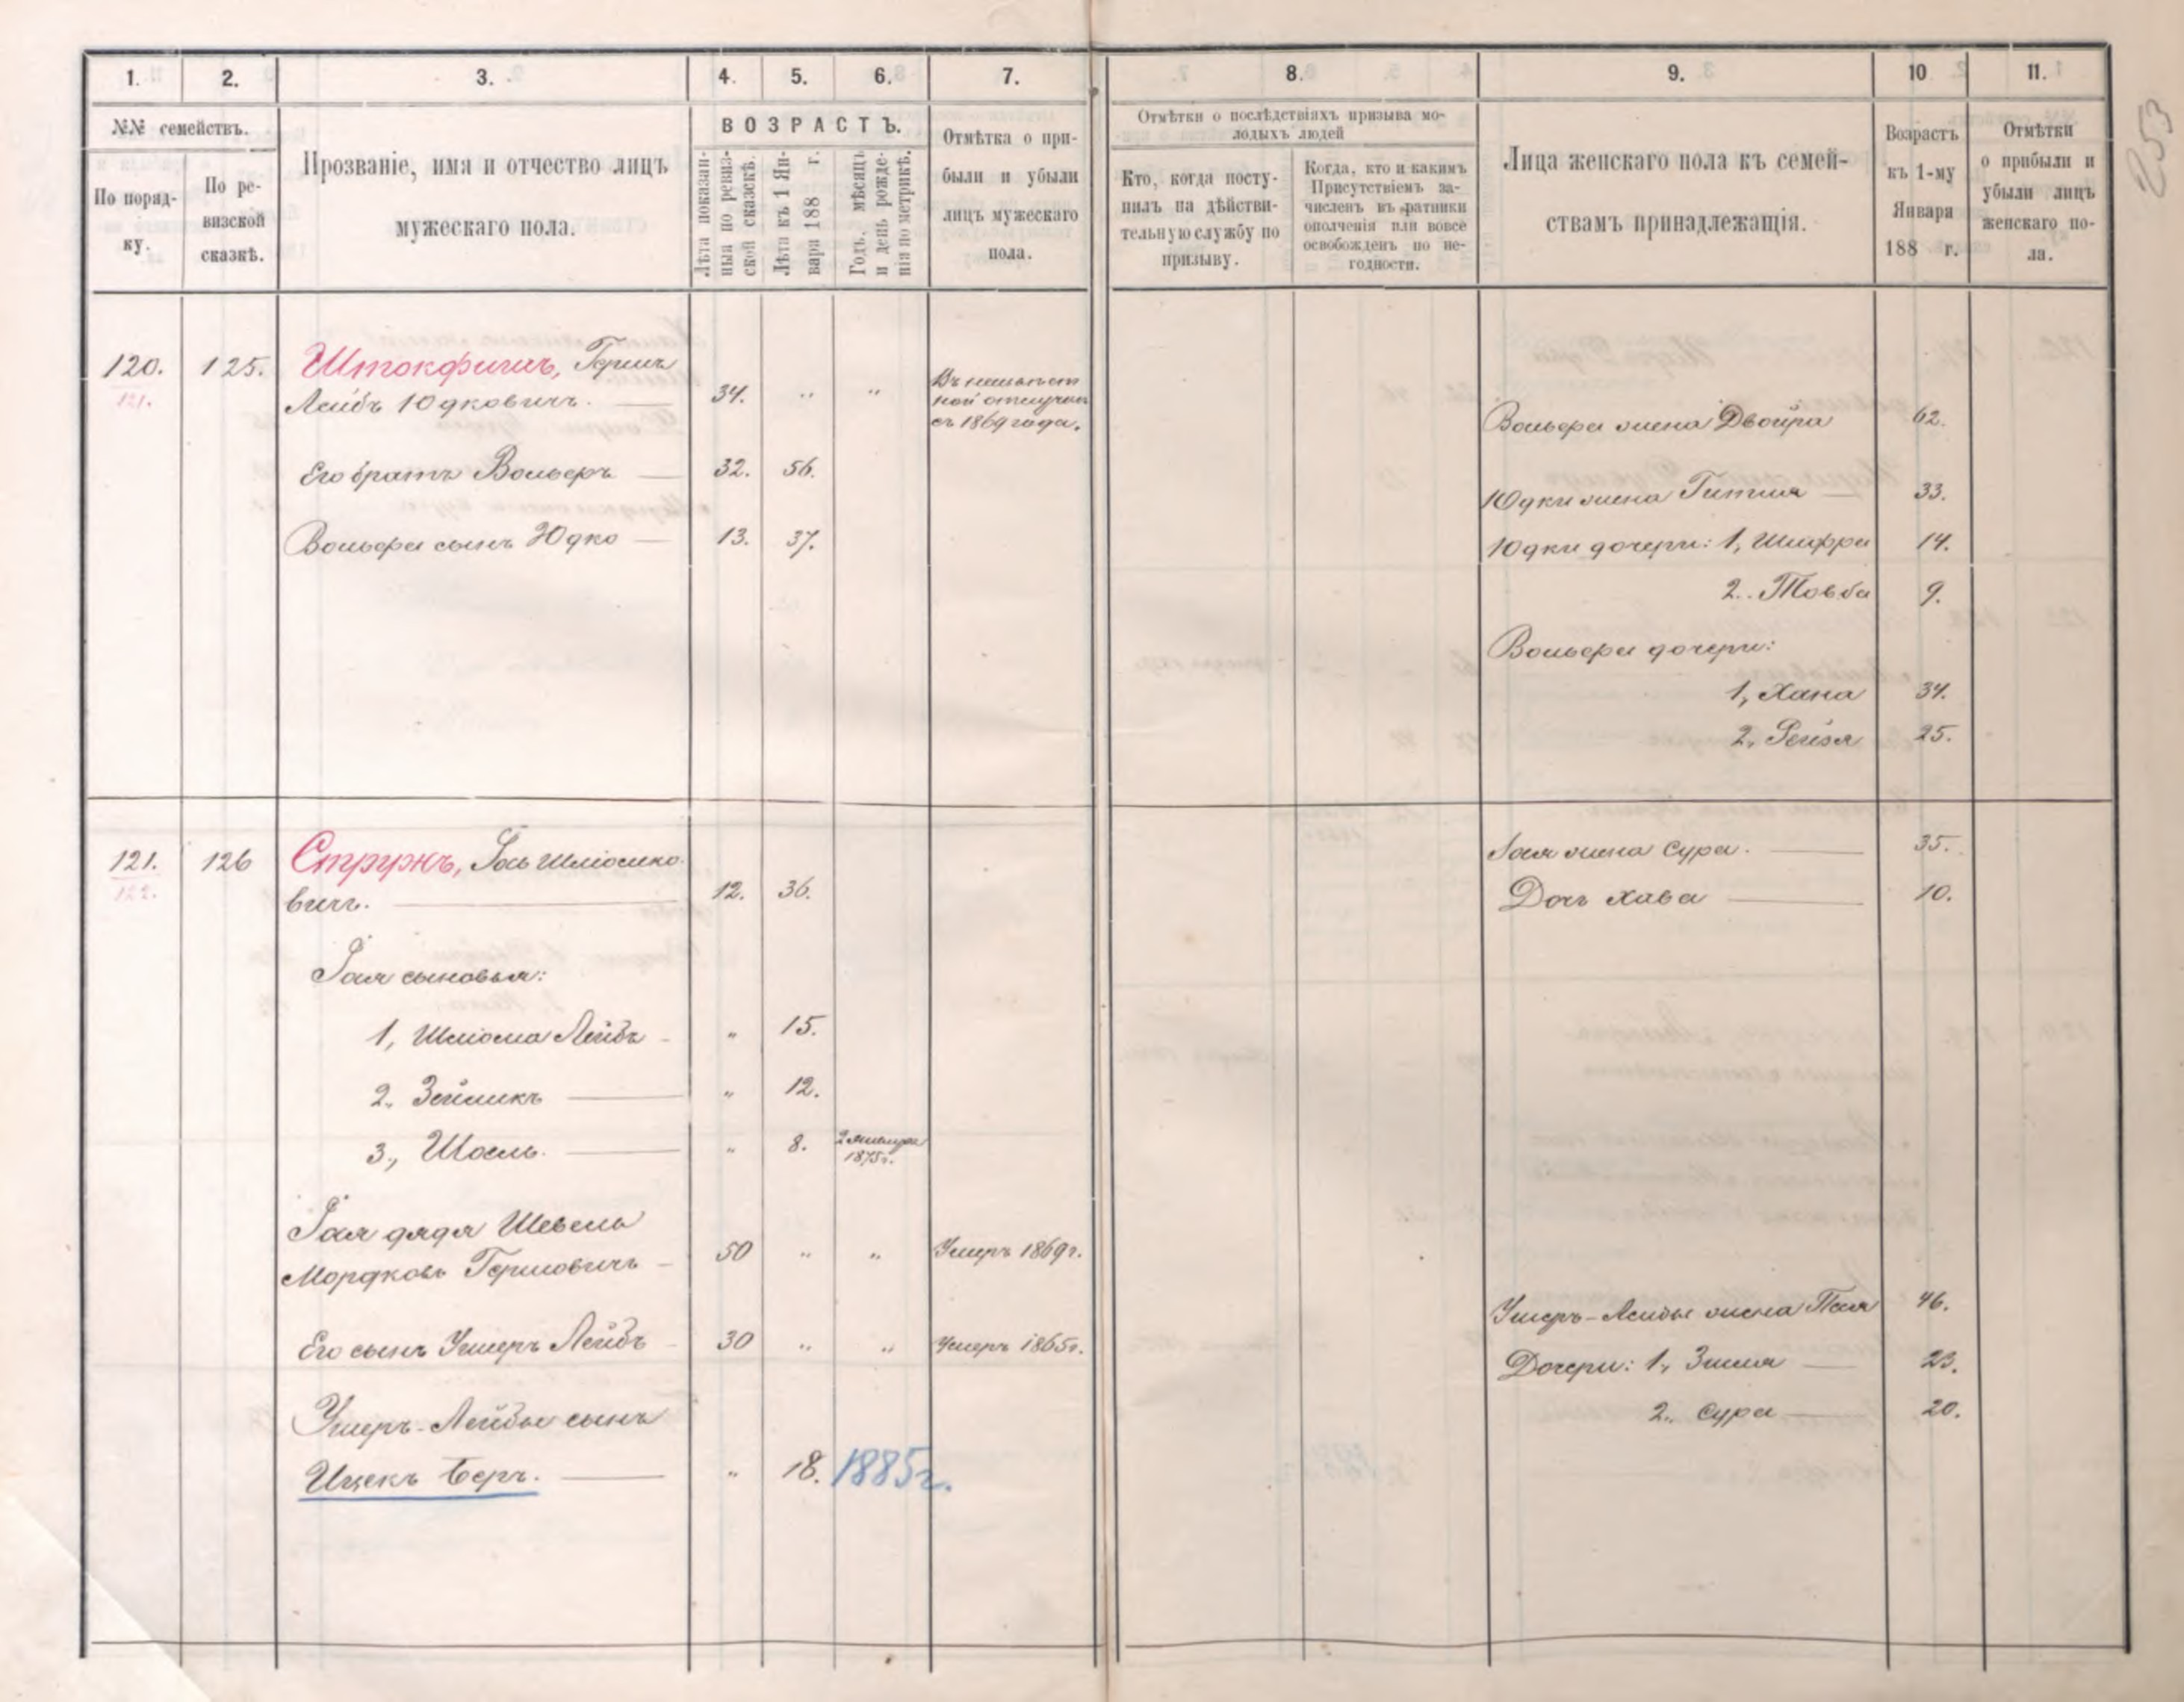 1. 2. 3. 4. 5. 6. 7. 8. 9. 10 11.
№№ семействъ.
По поряд-
ку.
По ре-
визской
сказкѣ.
Прозваніе, имя и отчество лицъ
мужескаго пола.
ВОЗРАСТЪ.
Лѣта показан-
ныя по ревиз-
ской сказкѣ.
Лѣта къ 1 Ян-
варя 188 г.
Годъ, мѣсяцъ
и день рожде-
нія по метрикѣ.
Отмѣтка о при-
были и убыли
лицъ мужескаго
пола.
Отмѣтки о послѣдствіяхъ призыва мо-
лодыхъ людей
Кто, когда посту-
пилъ на дѣйстви-
тельную службу по
призыву.
Когда, кто и какимъ
Присутствіемъ за-
численъ въ ратники
ополченія или вовсе
освобожденъ по не-
годности.
Лица женскаго пола къ семей-
ствамъ принадлежащія.
Возрастъ
къ 1-му
Января
188 г.
Отмѣтки
о прибыли и
убыли лицъ
женскаго по-
ла.
253
120. 125. Штокфишъ, Герш
121.
Лейбъ Юдковичъ. 34. " "
ной отлучкѣ
съ 1869 года.
Его братъ Вольфъ 32. 56.
Вольфа сынъ Юдко 13. 37.
Вольфа жена Двойра 62.
Юдки жена Гитля 33.
Юдки дочери: 1, Шифра 14.
2. Товба 9.
Вольфа дочери:
1, Хана 34.
2, Рейзя 25.
121. 126 Стружъ, Іось Шліомко-
122.
вичъ. 12. 36.
Іося сыновья:
1, Шліома Лейбъ " 15.
2. Зейликъ " 12.
3., Шоель. " 8. 2 Января
1875г.
Іося дядя Шевель
Мордковъ Гершовичъ 50 " " Умеръ 1869г.
Его сынъ Ушеръ Лейбъ 30 " " Умеръ 1865г.
Ушеръ-Лейбы сынъ
Ицекъ Беръ. " 18. 1885г.
Іося жена Сура. 35.
Дочь Хава 10.
Ушеръ-Лейбы жена Пая 46.
Дочери: 1, Зисля 23.
2. Сура 20.